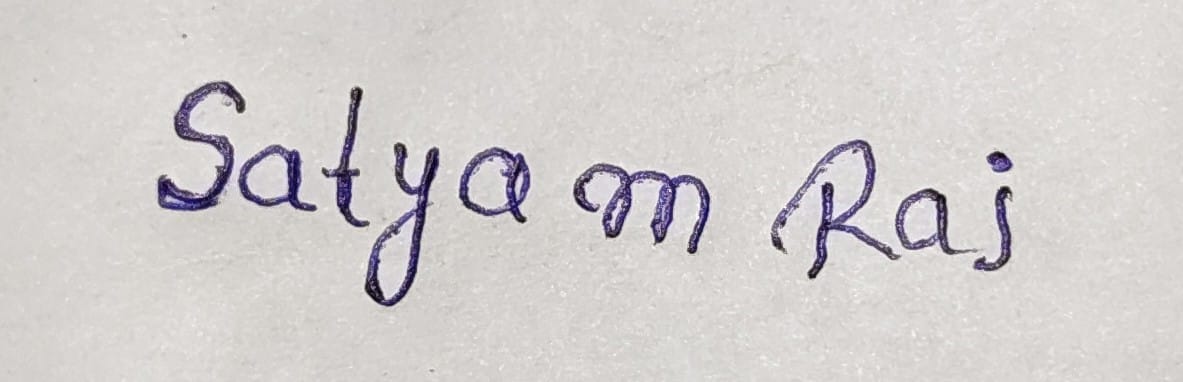 Satyam Raj